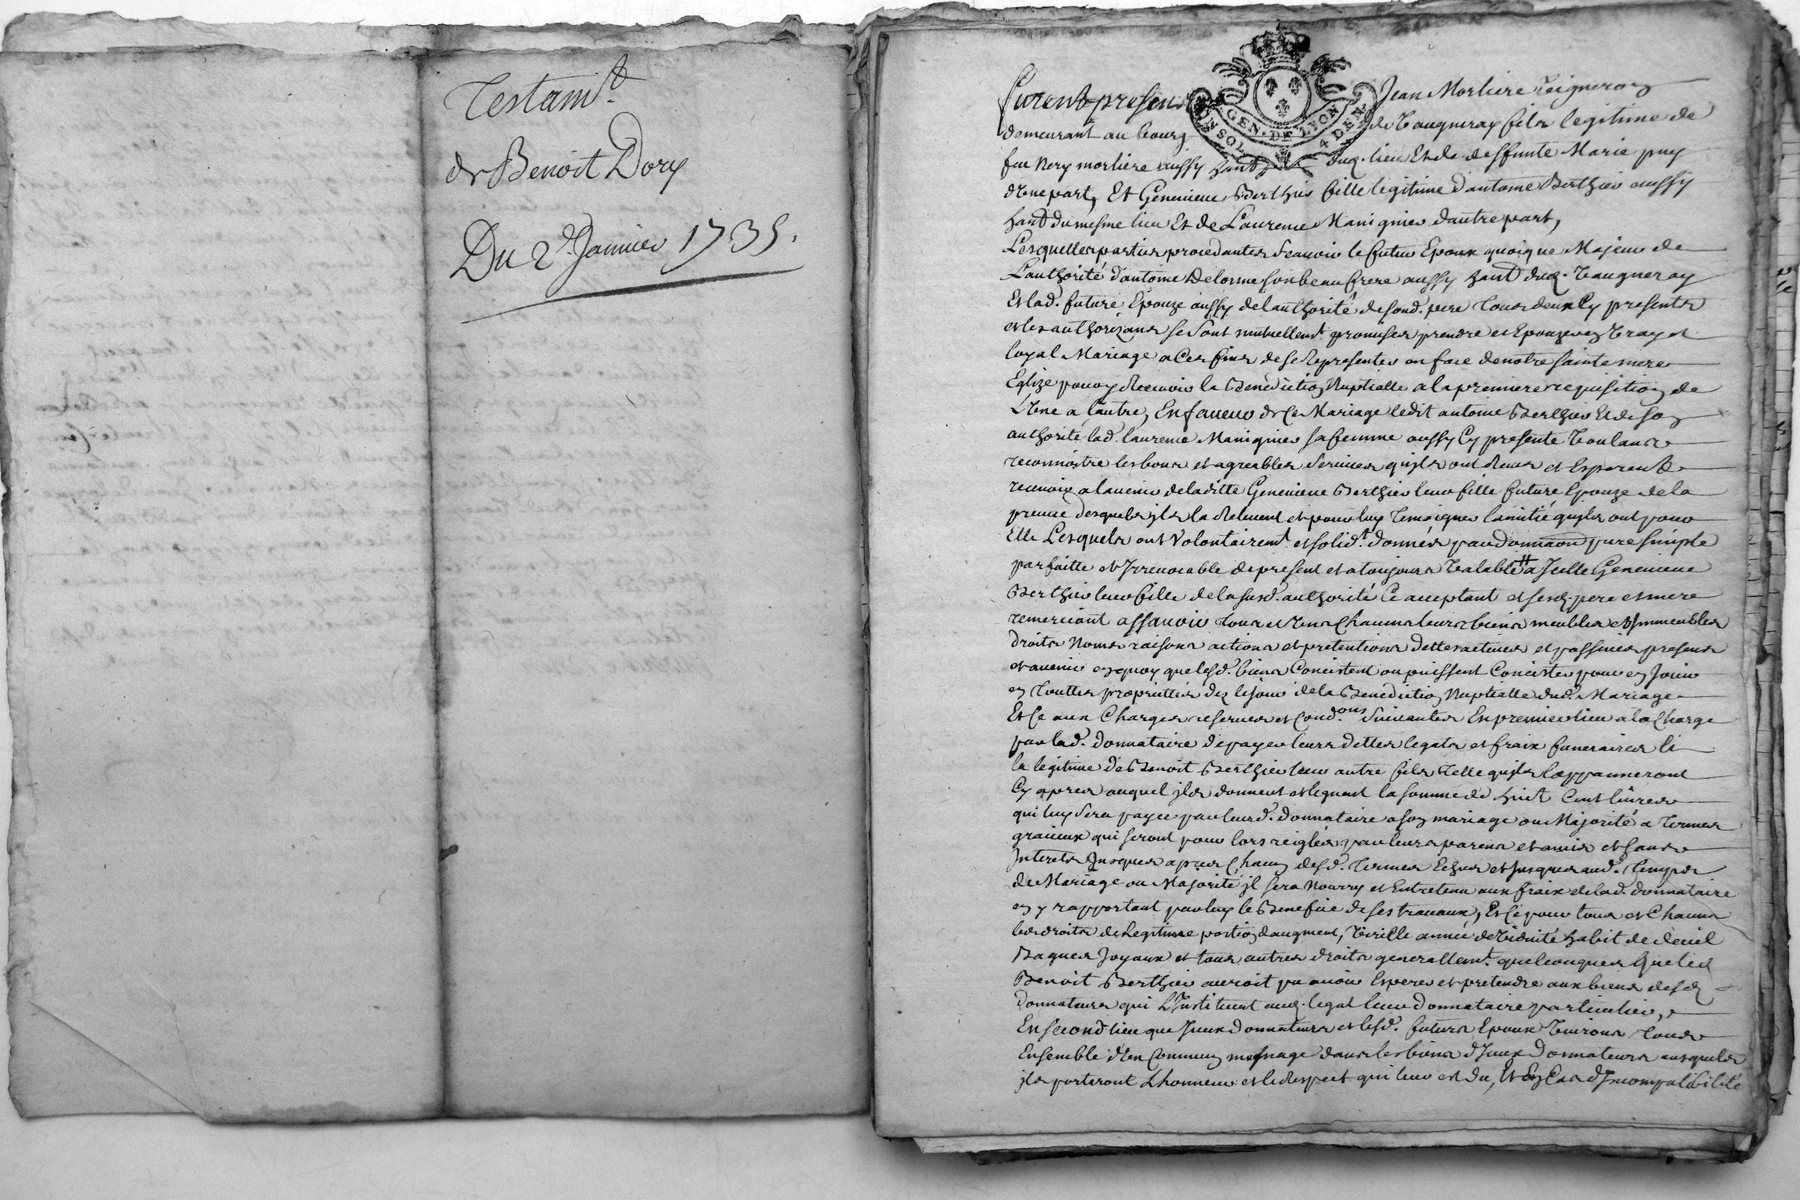 Testam.t
de Benoit Dory
Du 2.e Janvier 1735.
GEN. DE LYON
UN SOL 4 DEN
Furent presens Jean Morliere Vigneron
demeurant au bourg de Vaugneray fils legitime de
feu Nery morliere aussy hant dud. lieu Et de deffunte Marie puy
d'Une part, Et Genevieve Berthier fille legitime d'antoine Berthier aussy
hant du mesme lieu Et de Laurence Manignier dautre part,
Lesquelles parties procedantes scavoir le futur Epoux quoique Majeur de
L'authorité d'antoine Delorme son beau frere aussy hant dud. Vaugneray
Et lad. future Epouze aussy de lauthorité de sond. pere tous deux Cy presents
et les authorizans se sont mutuellem.t promises prendre et Epouzer en Vray et
loyal Mariage a Ces fins de se Representer en face de notre sainte mere
Eglize pour y Recevoir la Benediction Nuptialle a la premiere requisition de
L'Une a l'autre, En faveur de Ce Mariage ledit antoine Berthier Et de son
authorité lad. laurence Manignier sa femme aussy Cy presente Voulants
reconnoistre les bons et agreables services quils ont Reçus et Esperent
recevoir a lavenir de laditte Genevieve Berthier leur fille future Epouze de la
preuve desquels ils la Relevent et pour luy Temoigner lamitié quils ont pour
Elle Lesquels ont Volontairem.t et solid.t donnés par donnaon pure simple
parfaitte et Irrevocable de present et a toujours Valable # a Icelle Genevieve
Berthier leur fille de la susd. authorité Ce acceptant et sesd. pere et mere
remerciant assavoir tous et Uns Chacuns leurs biens meubles et Immeubles
droits Noms raisons actions et pretentions dettes actives et passives presens
et avenir en quoy que lesd. biens Concistent ou puissent Concister pour en Jouir
en touttes proprietés dez le jour de la Benediction Nuptialle dud. Mariage
Et Ce aux Charges reserves et Cond.ons suivantes En premier lieu a la Charge
par lad. donnataire de payer leurs dettes legats et fraix funeraires Et
la legitime de Benoit Berthier leur autre fils Telle quils lappanneront
Cy apres auquel ils donnent et leguent la somme de huit Cent livres
qui luy sera payée par leurd. donnataire a son mariage ou Majorité a termes
gracieux qui seront pour lors reiglés par leurs parens et amis et sans
Interets Jusques apres Chacun desd. Termes Echus et Jusques aud. temps
de Mariage ou Majorité il sera Nourry et Entretenu aux fraix de lad. donnataire
en y rapportant par luy le Benefice de ses travaux, Et Ce pour tous et Chacuns
les droits de Legitime portion daugment, Virille année de Viduité habit de deüil
Bagues Joyaux et tous autres droits generallem.t quelconques que led
Benoit Berthier auroit pu avoir Esperer et pretendre aux biens desd.
donnateurs qui L'Instituent aud. legat leur donnataire particulier,
En second lieu que Iceux donnateurs et lesd. futurs Epoux Vivront tous
Ensemble d'Un Commun mesnage dans les biens d'Iceux Donnateurs ausquels
ils porteront L'honneur et le Respect qui leur est du, Et En Cas d'Incompatibilité